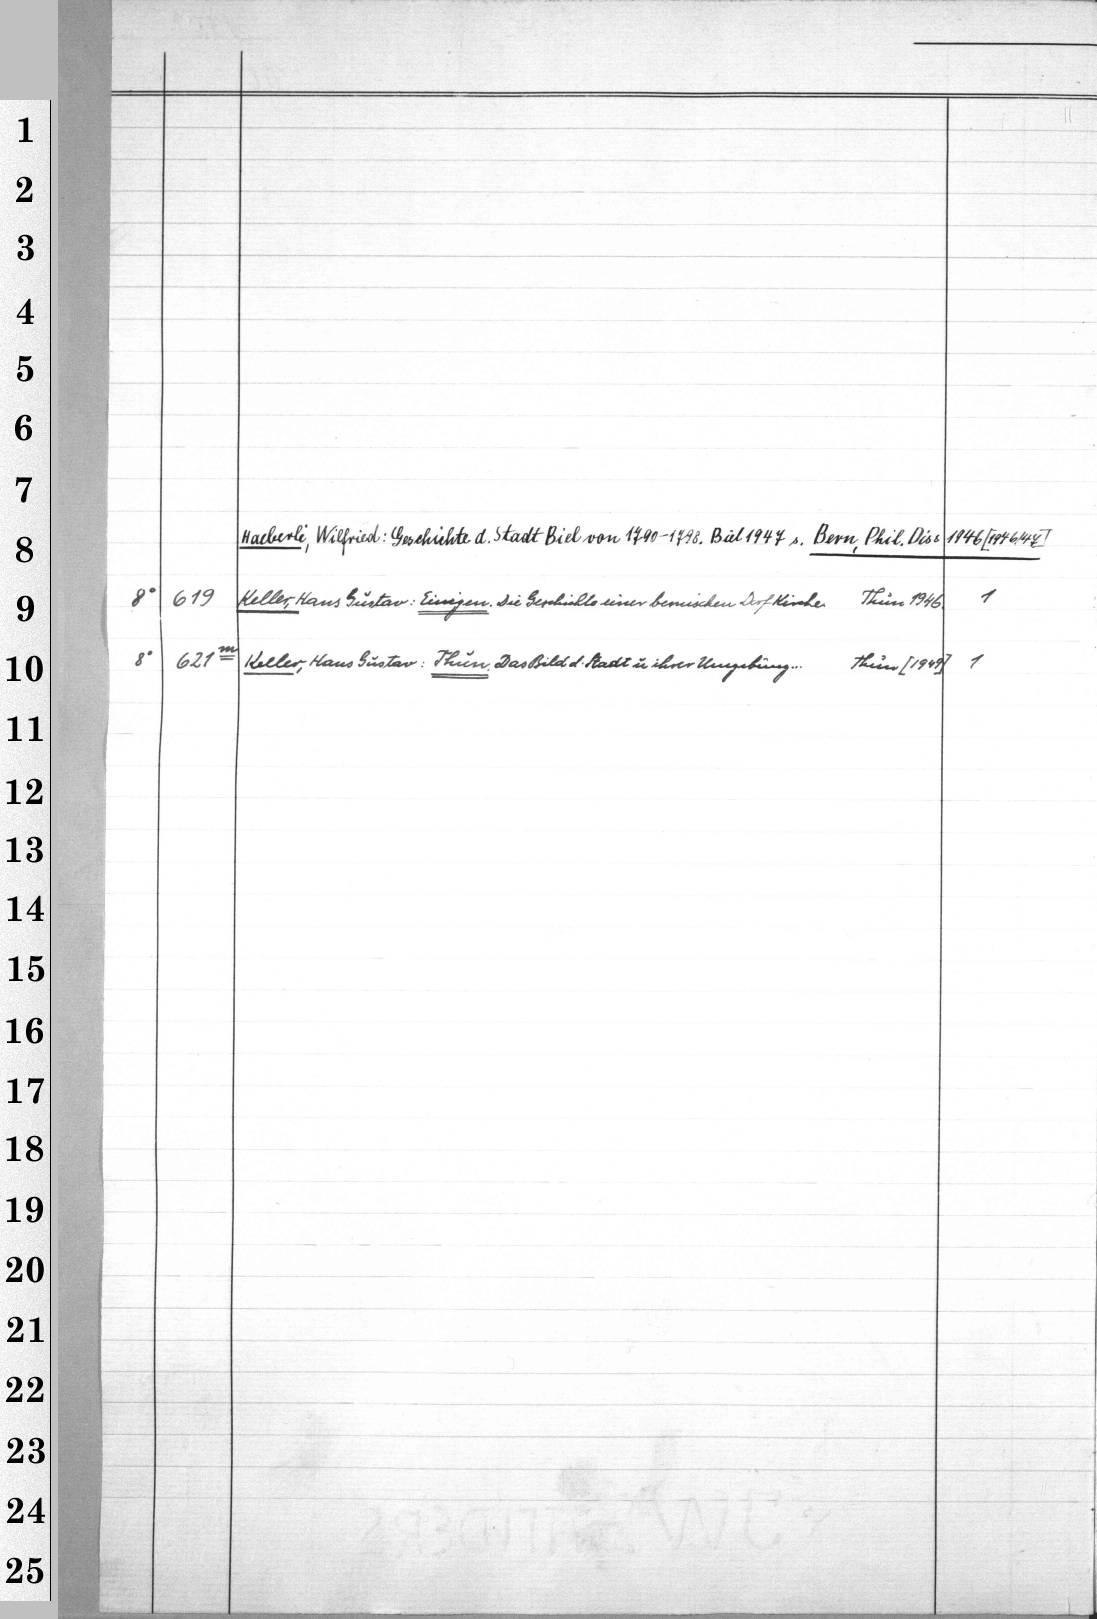 1
2
3
4
5
6
7
8
9
10
11
12
13
14
15
16
17
18
19
20
21
22
23
24
25
Haeberli, Wilfried: Geschichte d. Stadt Biel von 1790-1798. Biel 1947 s. Bern, Phil. Diss 1946 [1946/47]
8° 619 Keller, Hans Gustav: Einigen. Die Geschichte einer bernischen Dorfkirche. Thun 1946. 1
8° 621m Keller, Hans Gustav: Thun. Das Bild d. Stadt u ihrer Umgebung... Thun [1949] 1